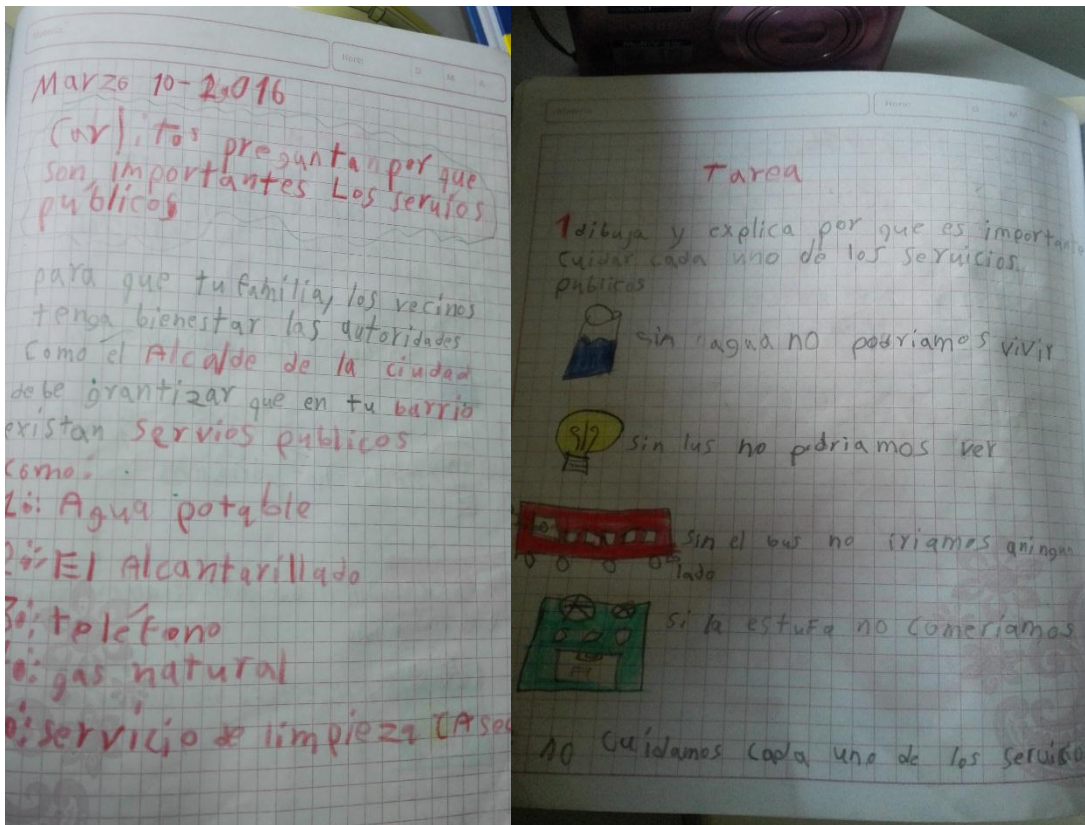 Marzo 10-2,016
Carlitos preguntan por que
son importantes Los servios
públicos
para que tu familia, los vecinos
tenga bienestar las autoridades
Como el Alcalde de la ciudad
debe grantizar que en tu barrio
existan servios publicos
como:
1o: Agua potable
2o: El Alcantarillado
3o: teléfono
o: gas natural
o: servicio de limpieza (Aseo
Tarea
1 dibuja y explica por que es importante
cuidar cada uno de los seruicios
publicos
sin agua no podriamos vivir
sin lus no pdriamos ver
sin el bus no iriamos aningun
lado
si la estufa no comeriamos
no cuidamos cada uno de los